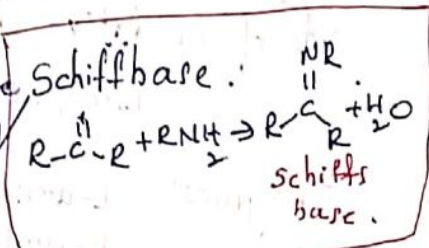 Schiffbase :
NR
||
R-C-R + RNH2 → R C R + H2O
schiffs
base.